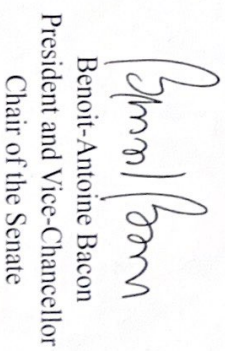 Benoit-Antoine Bacon
President and Vice-Chancellor
Chair of the Senate